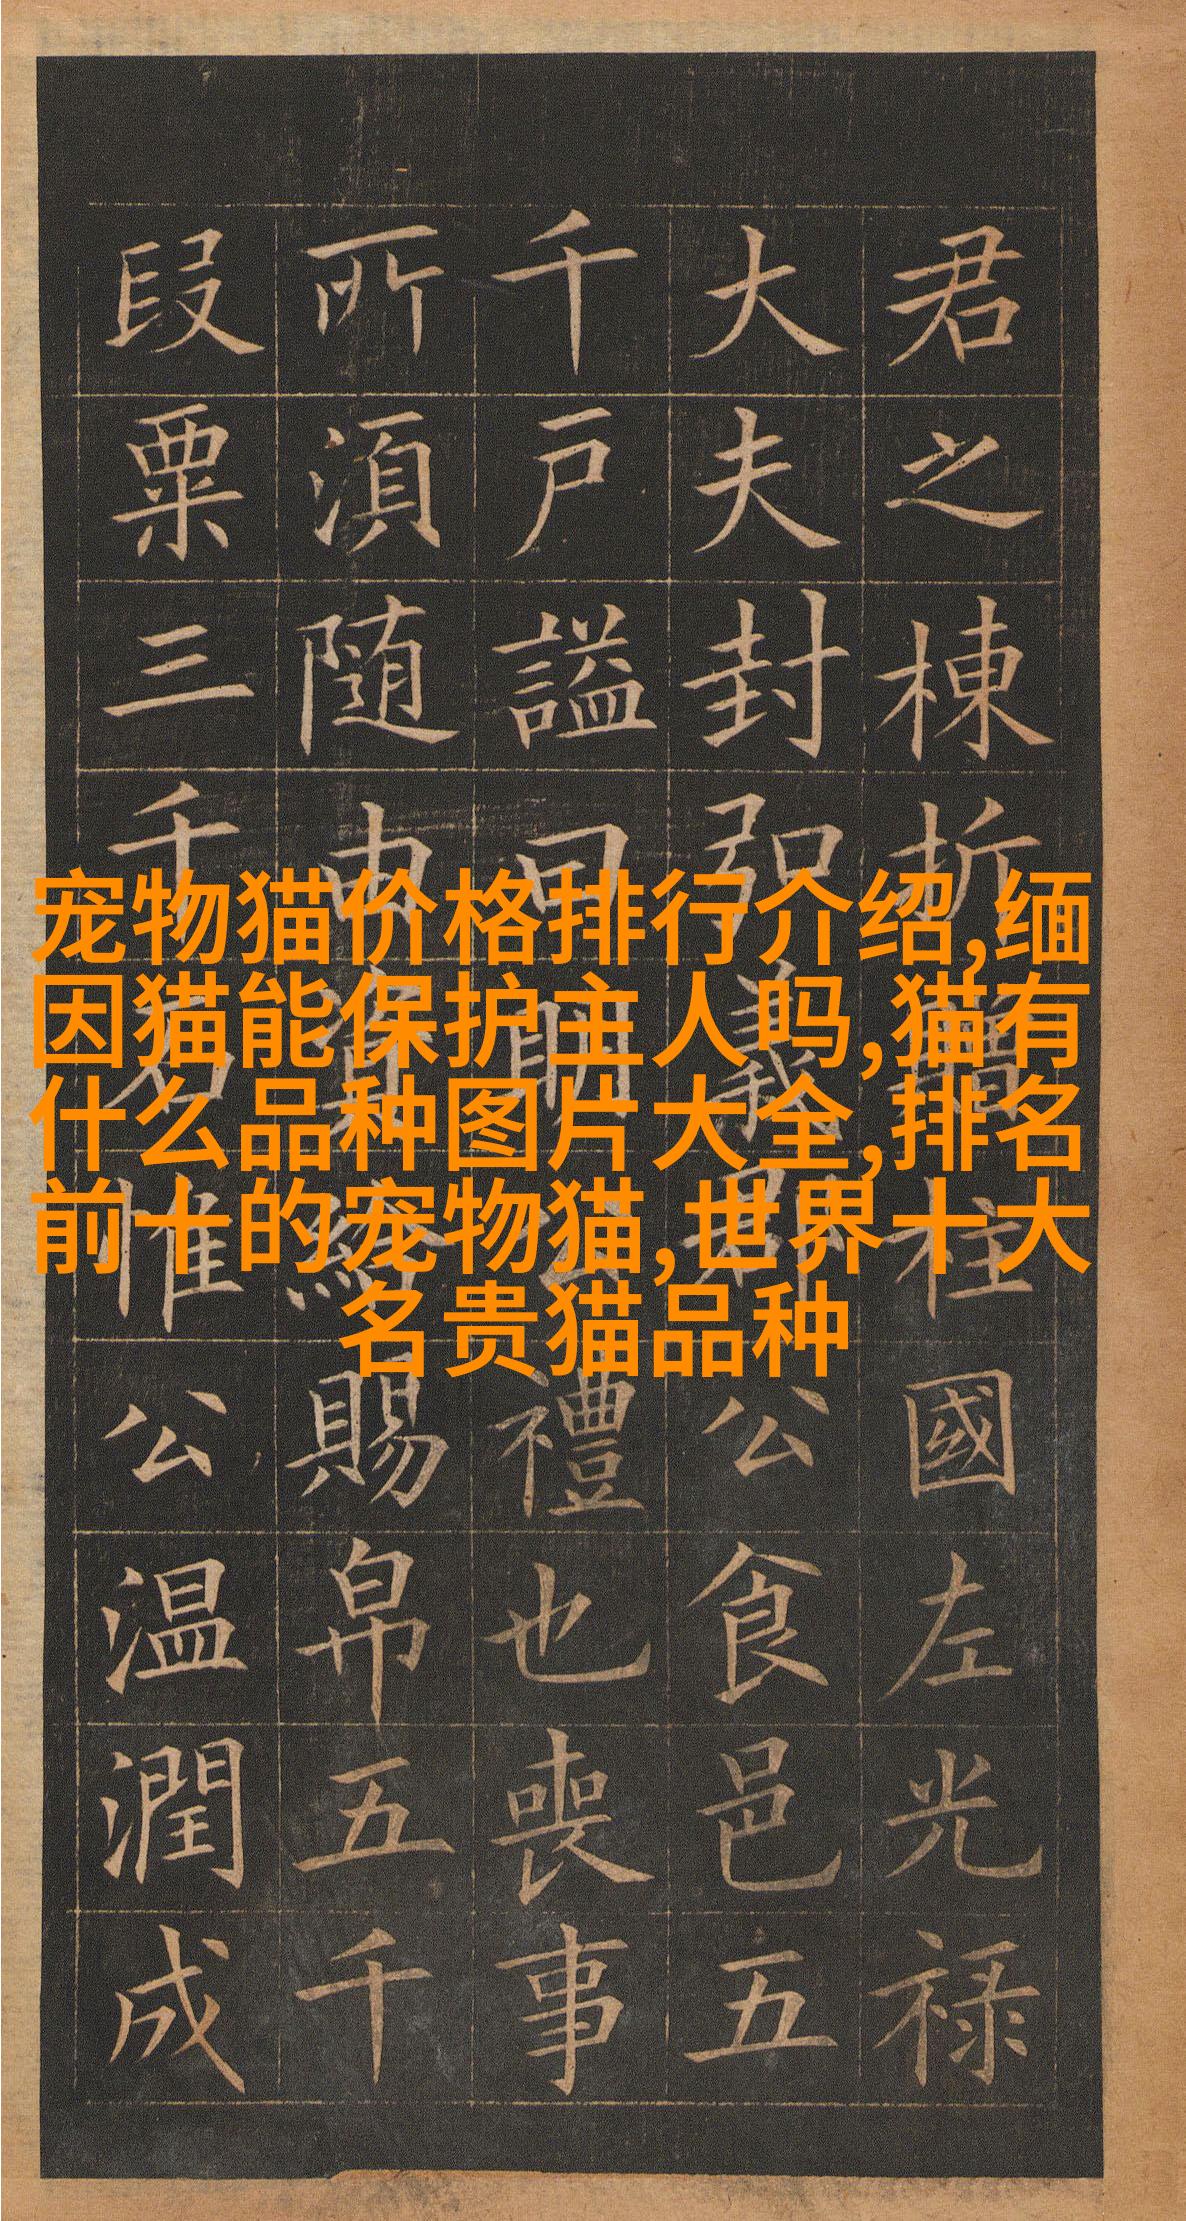 君之棟折贈柱國左光禄
大夫封弘義郡公食邑五
千戸謚曰明公禮也喪事
所湏随由資給賜帛五千
段粟三千石惟公温潤成
宠物猫价格排行介绍,缅
因猫能保护主人吗,猫有
什么品种图片大全,排名
前十的宠物猫,世界十大
名贵猫品种